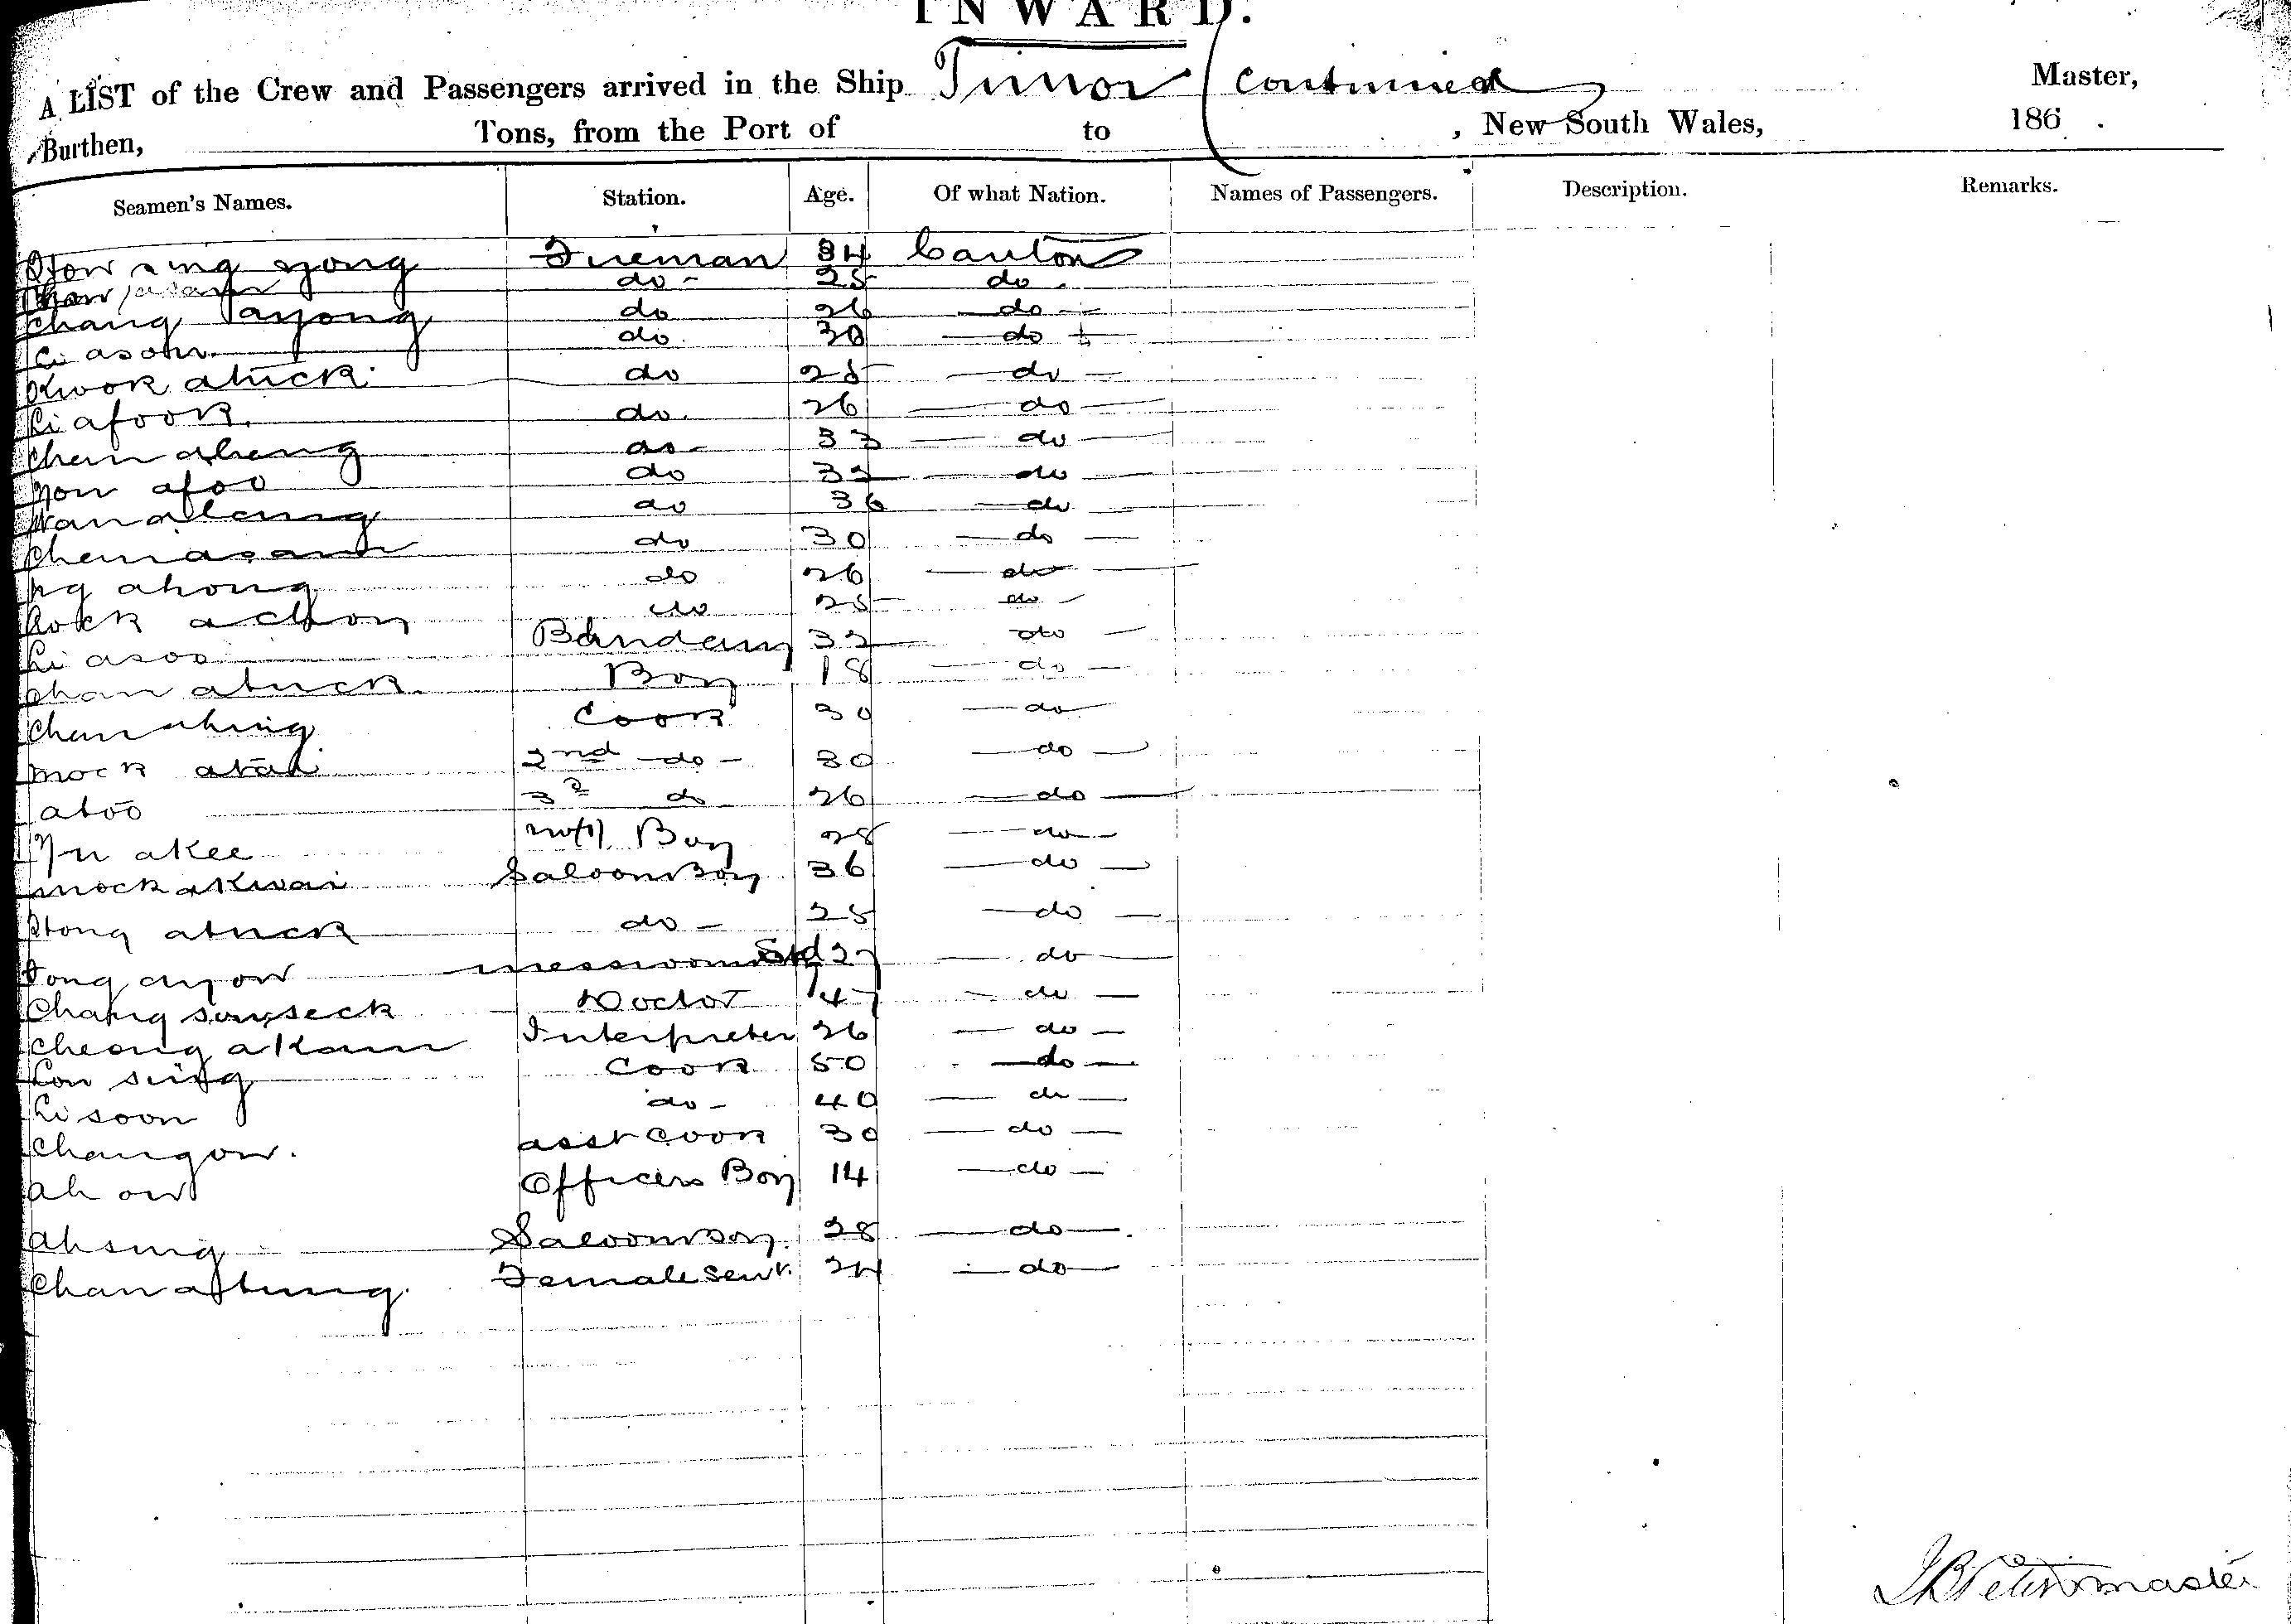 INWARD.
A LIST of the Crew and Passengers arrived in the Ship Timor (continued Master,
Burthen, Tons, from the Port of to , New South Wales, 186 .
Seamen's Names. Station. Age. Of what Nation. Names of Passengers. Description. Remarks.
yong Fireman 34 Canton
do - 25 do
Chang ayong do 26 do
Li asow do 30 do
Kwok atuck do 25 do
Li afook do 26 do
Chan do 33 do
You afoo do 32 do
do 36 do
Chan asam do 30 do
Ng ahong do 26 do
do 25 do
Li asoo 32 do
Chan atuck Boy 18 do
Chan ahing Cook 30 do
Mock atai 2nd do - 30 do
atoo 3d do 26 do
Yu akee Boy 28 do
Mock akwai Saloon Boy 36 do
Hong atuck do - 25 do
Tong ayow messroom 27 do
Chang seck Doctor 47 do
Cheong akam Interpreter 26 do
Lou sing Cook 50 do
Li soon do - 40 do
Changow. asst Cook 30 do
Ah ow Officers Boy 14 do
Ahsing Saloon Boy. 28 do
Chan Female Servt. 24 do
master